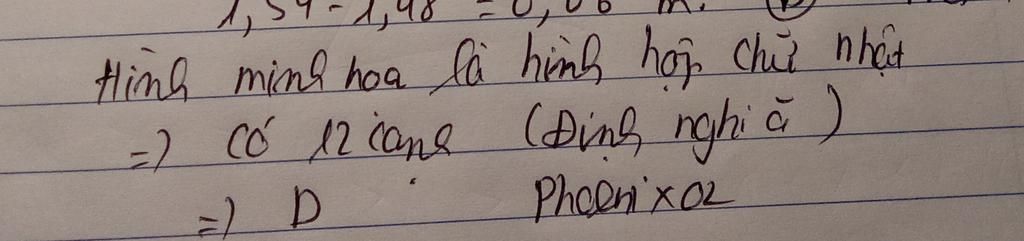 1,54 - 1,48 = 0,06 m.
Hình minh hoạ là hình hộp chữ nhật
=) Có 12 cạnh (Định nghĩa)
=) D PhoeniX02